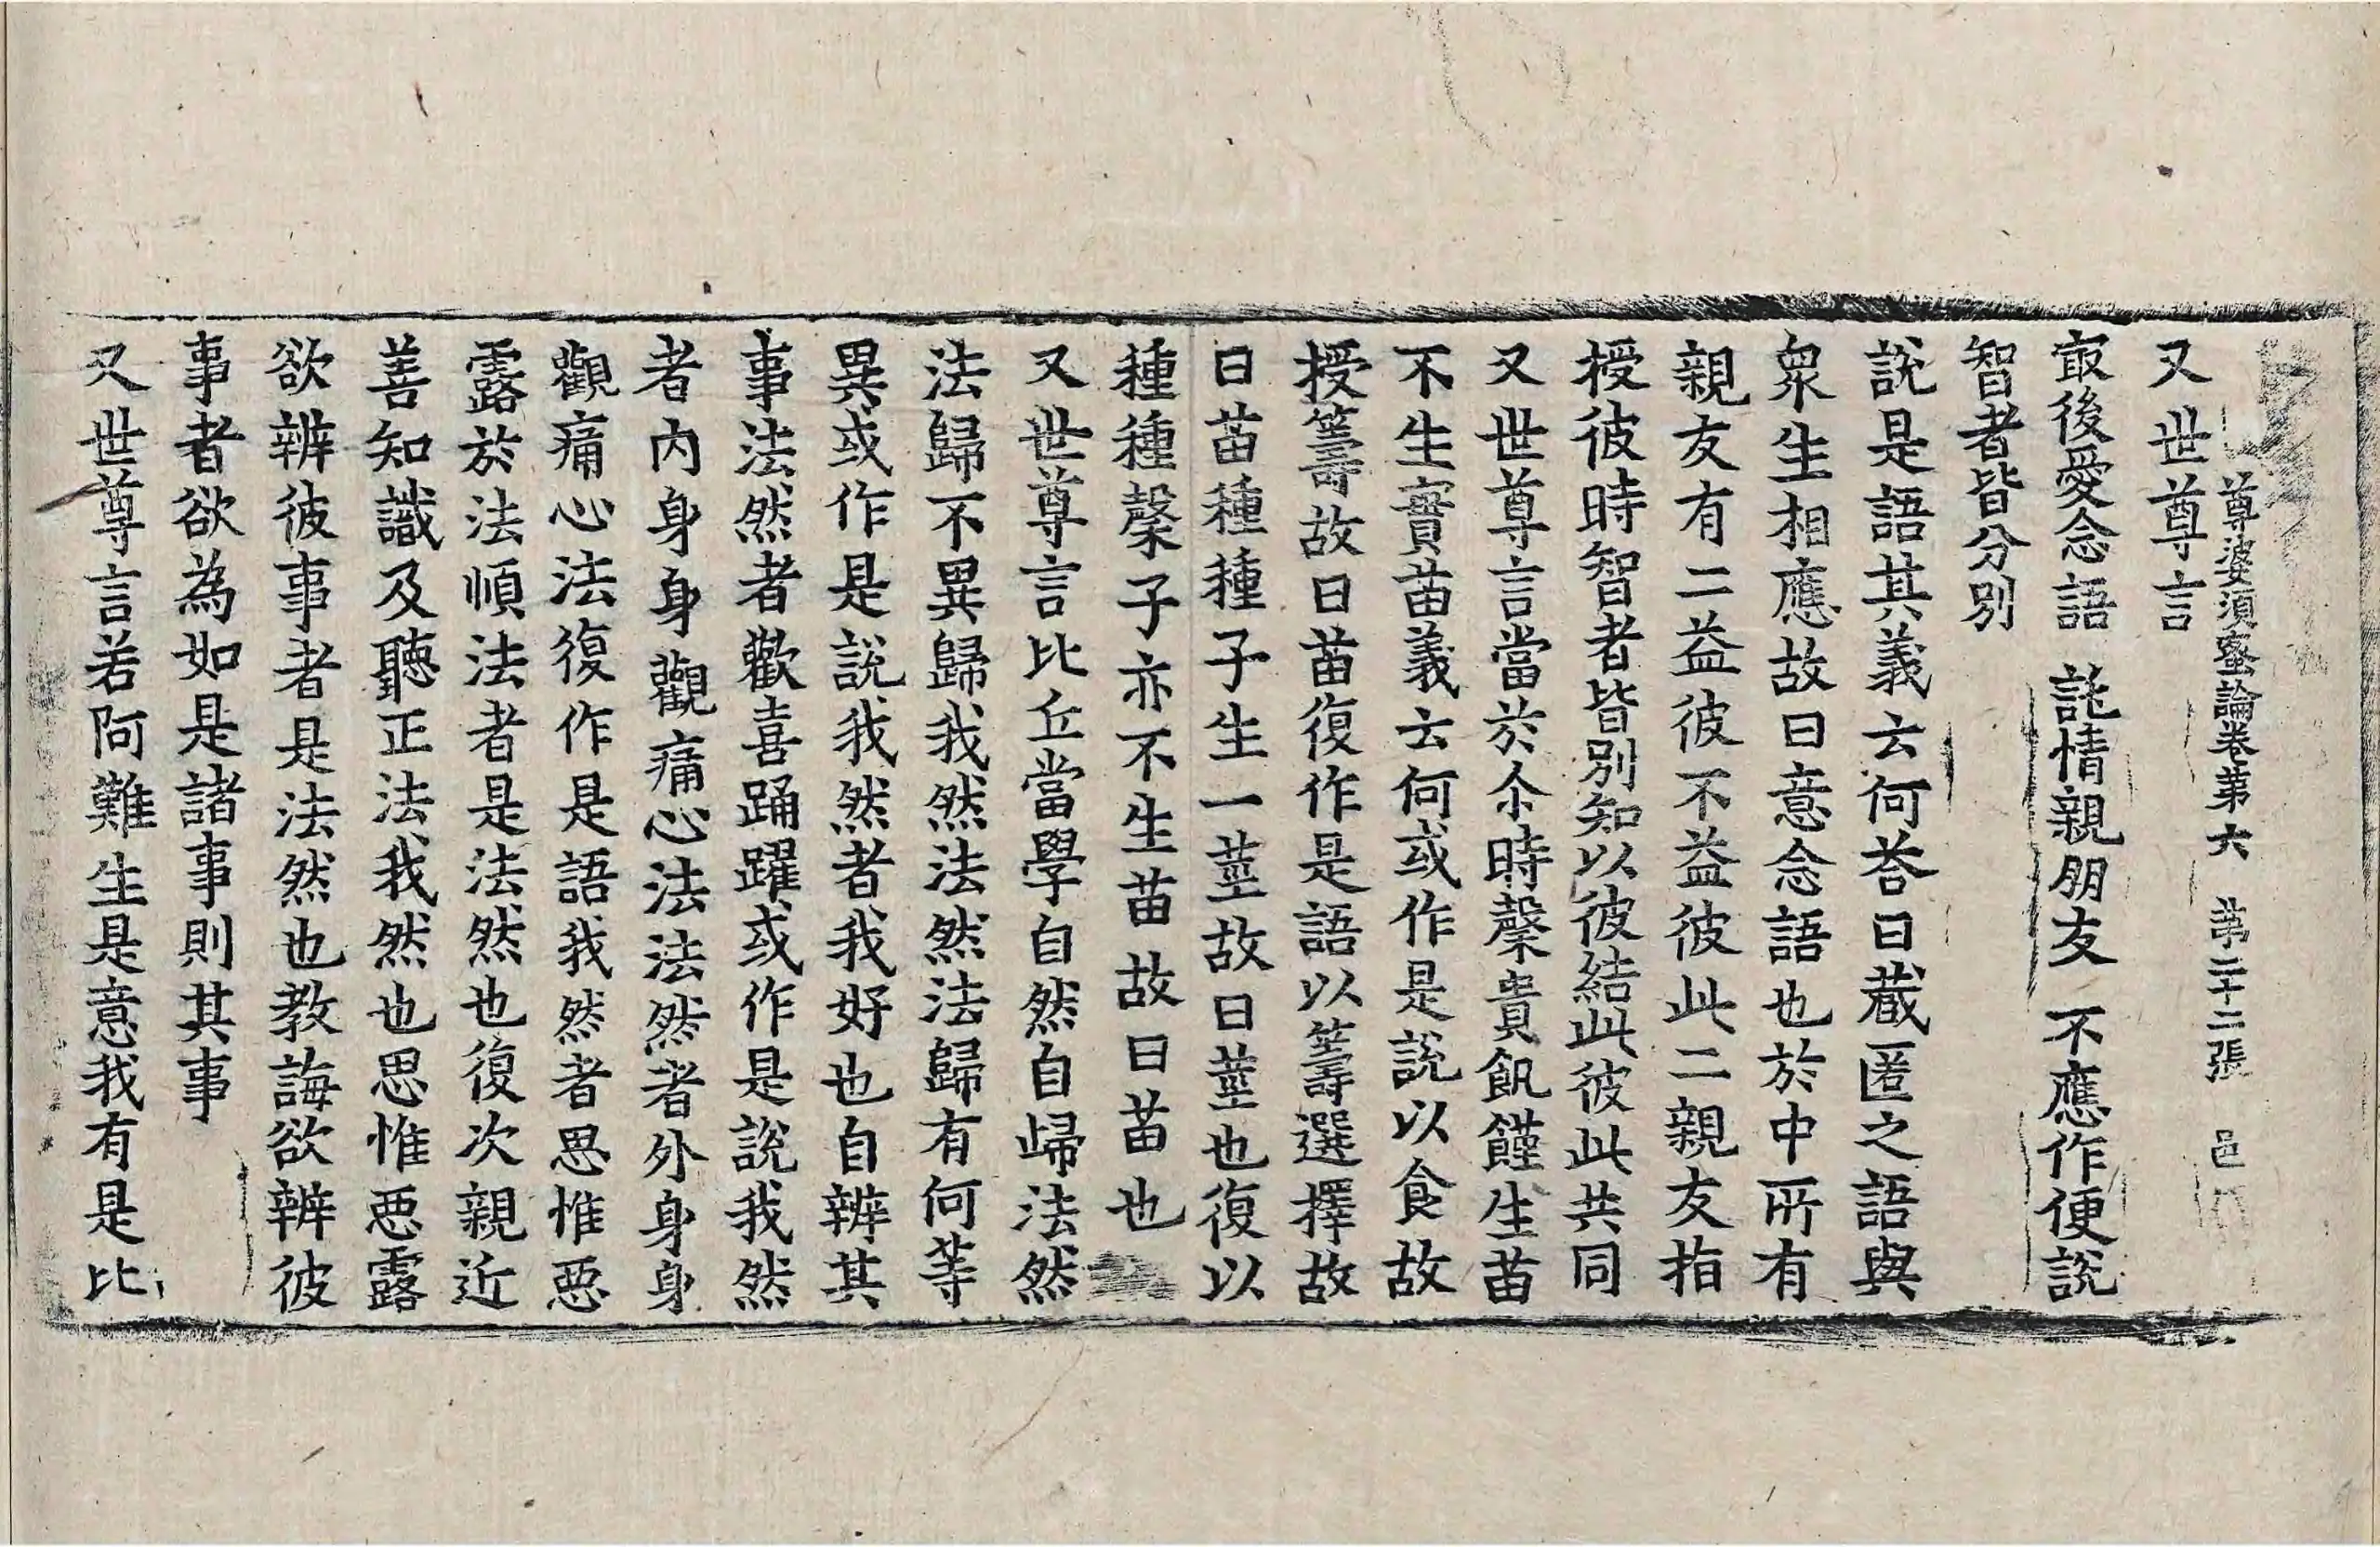 尊婆須蜜論卷苐六 苐二十二張 邑
又世尊言
㝡後愛念語 詫情親朋友 不應作便說
智者皆分別
說是語其義云何荅曰藏匿之語與
衆生相應故曰意念語也於中所有
親友有二益彼不益彼此二親友指
授彼時智者皆別知以彼結此彼此共同
又世尊言當於尒時穄貴飢饉生苗
不生實苗義云何或作是說以食故
授籌故曰苗復作是語以籌選擇故
曰苗種種子生一莖故曰莖也復以
種種穄子亦不生苗故曰苗也
又世尊言比丘當學自然自歸法然
法歸不異歸我然法然法歸有何等
異或作是說我然者我好也自辨其
事法然者歡喜踊躍或作是說我然
者內身身觀痛心法法然者外身身
觀痛心法復作是語我然者思惟惡
露於法順法者是法然也復次親近
善知識及聽正法我然也思惟惡露
欲辨彼事者是法然也教誨欲辨彼
事者欲為如是諸事則其事
又世尊言若阿難生是意我有是比